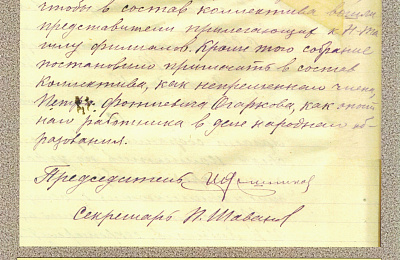 чтобы в состав коллектива вошли
представители прилегающих к Н-Та
гилу филиалов. Кроме того собрание
постановило пригласить в состав
Коллектива, как непременнаго члена,
Петра Фотиевича Огаркова, как опыт
наго работника в деле народнаго об-
разования.
Председатель
Секретарь П. Шаванов